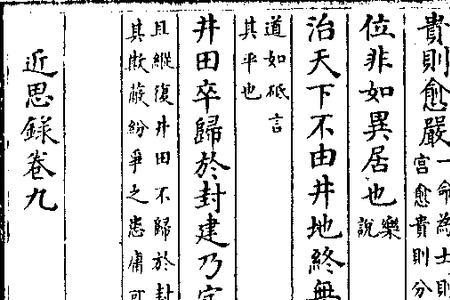 貴則愈嚴
一命為士則
宮愈貴則分
位非如異居也
樂
說
治天下不由井地終無
道如砥言
其平也
井田卒歸於封建乃定
且縱復井田不歸於封
其欺蔽紛爭之患庸可
近思錄卷九